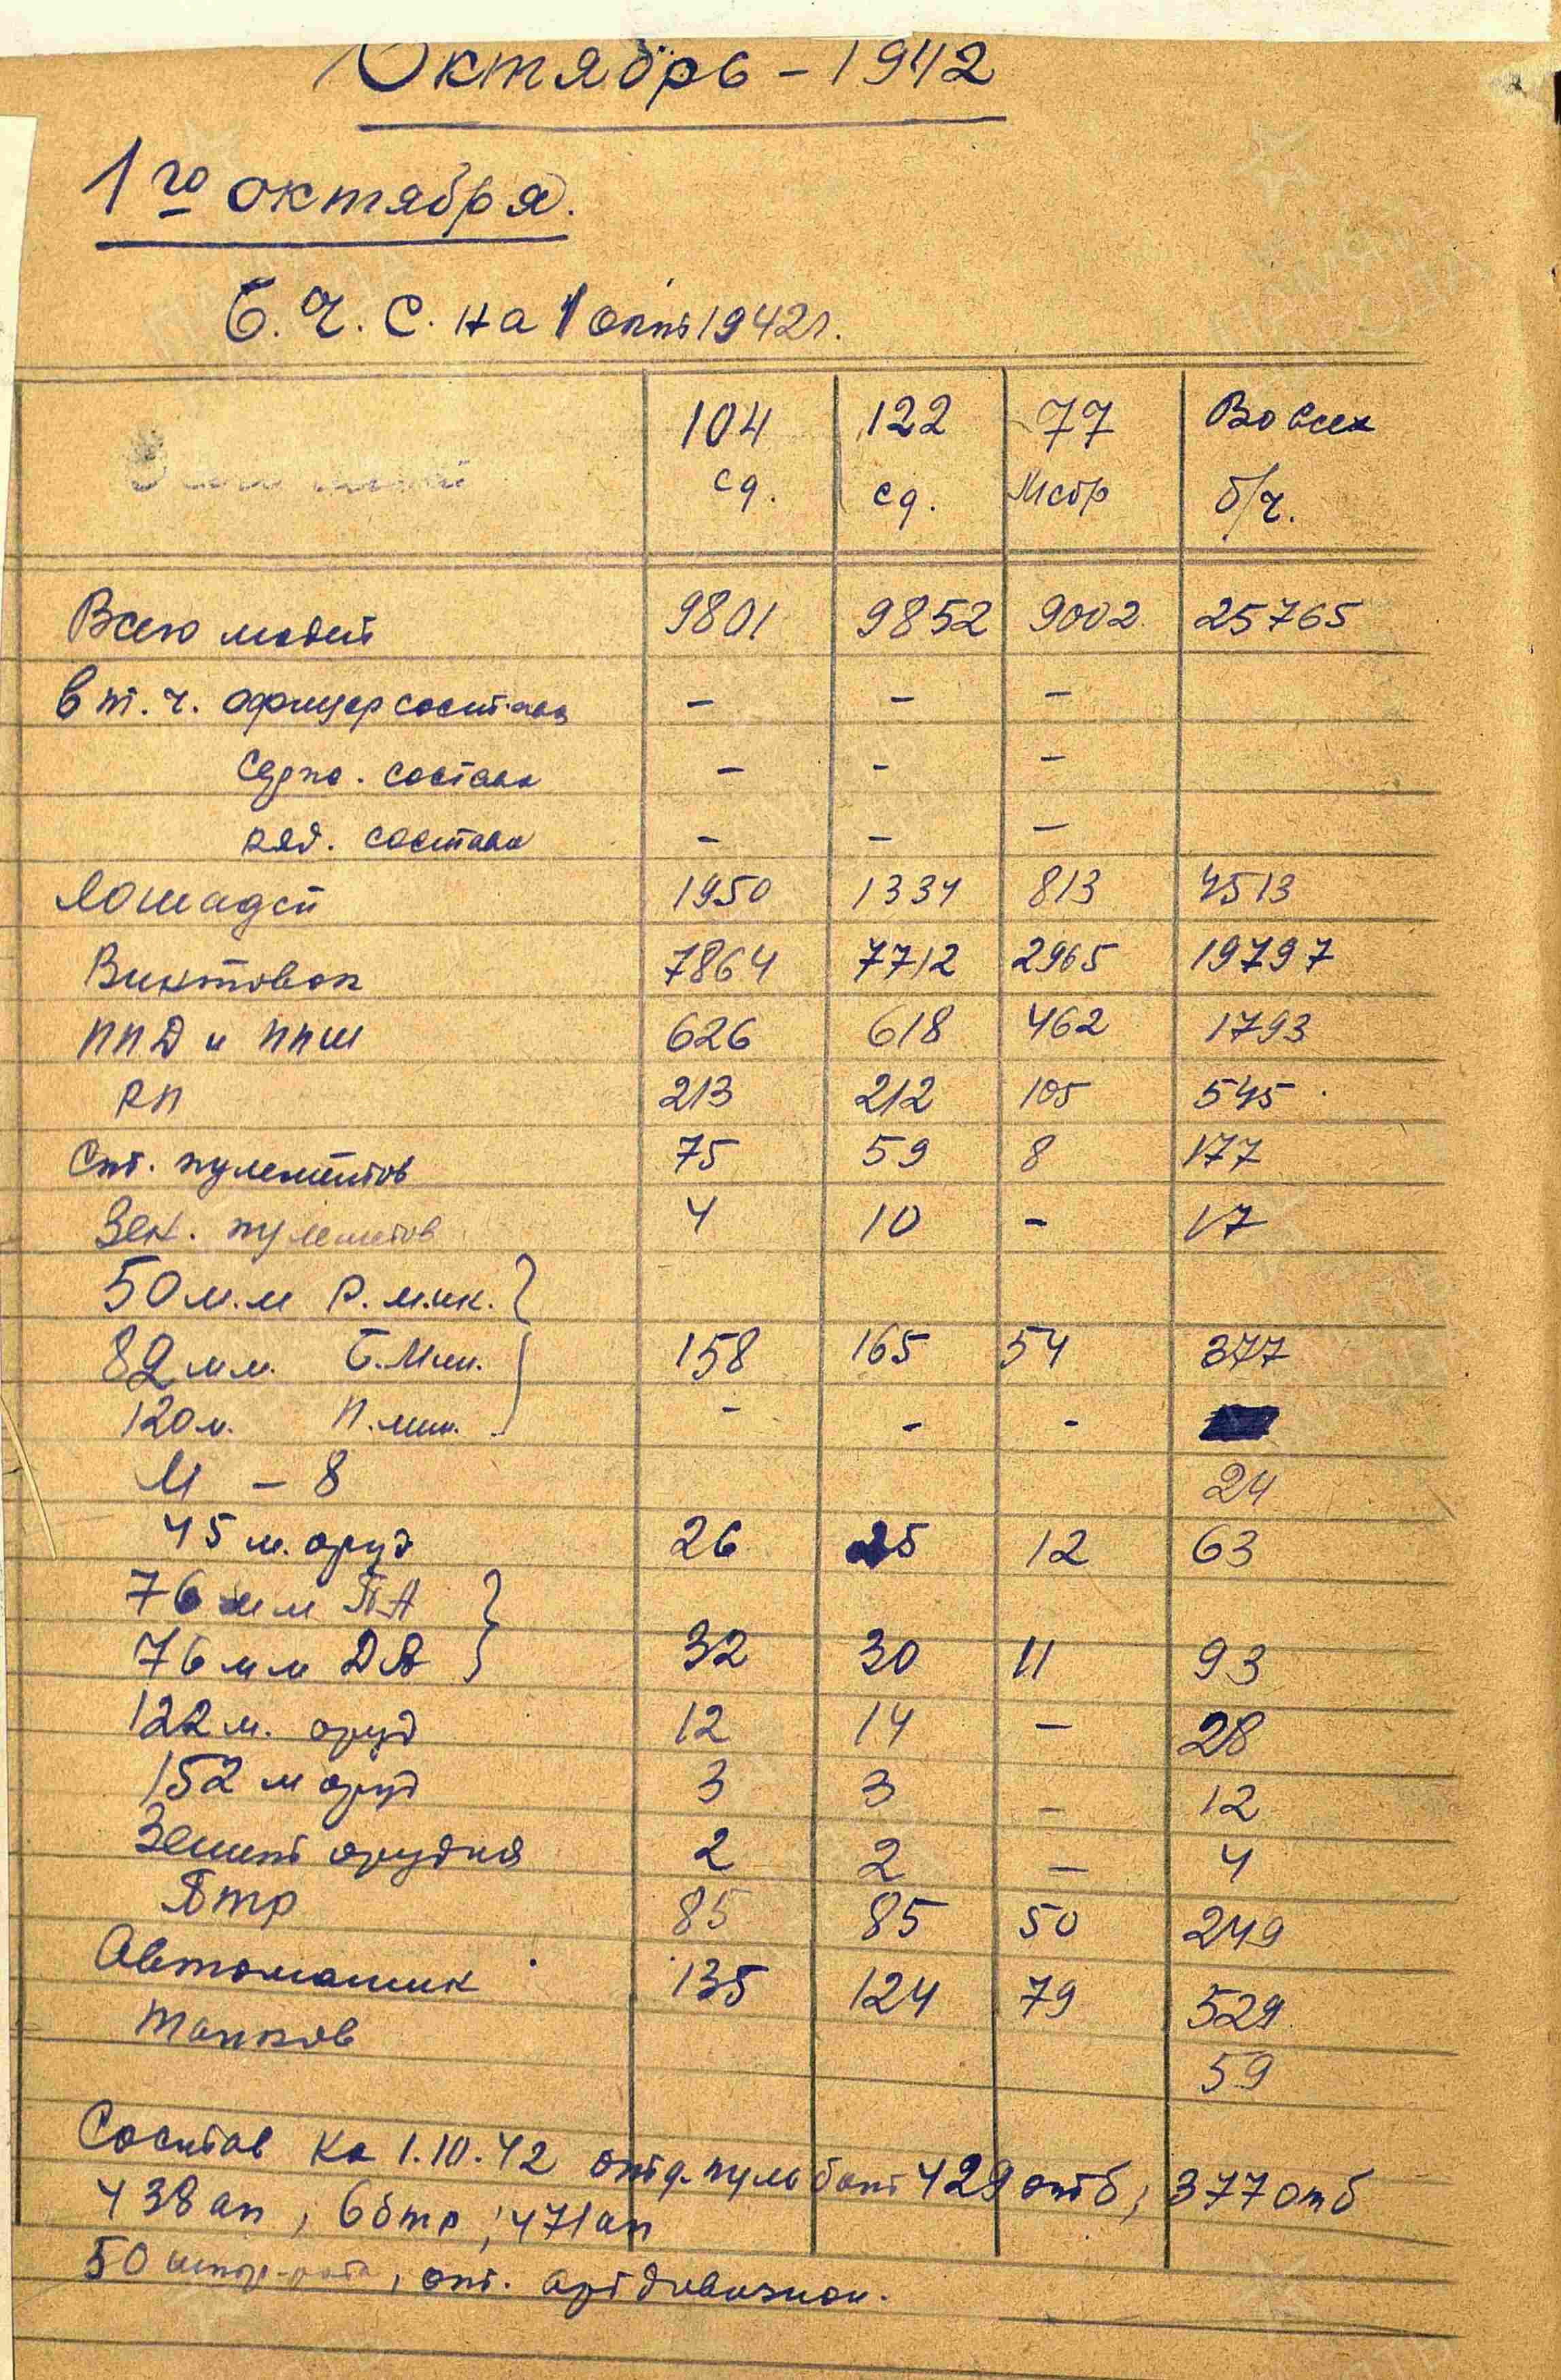 Октябрь - 1942
1го октября.
Б. Ч. С. на 1 окт 1942г.
104 122 77 Во всех
сд. сд. Мсбр б/ч.
Всего людей 9801 9852 9002 25765
в т. ч. офицер состава - - -
серж. состава - - -
ряд. состава - - -
Лошадей 1950 1334 813 4513
Винтовок 7864 7712 2965 19797
ППД и ППШ 626 618 462 1793
РП 213 212 105 545
Ст. пулеметов 75 59 8 177
Зен. пулеметов 4 10 - 17
50 м.м Р. мин.
82 мм. Б. Мин. 158 165 54 377
120 м. П. мин. - - -
М - 8 24
45 м. оруд 26 25 12 63
76 мм ПА
76 мм ДА 32 30 11 93
122 м. оруд 12 14 - 28
152 м оруд 3 3 - 12
Зенит орудия 2 2 - 4
Птр 85 85 50 249
Автомашин 135 124 79 529
Танков 59
Состав на 1.10.42 отд. пуль бат 429 отб; 377 отб
438 ап, 6 бтр; 471 ап
50 штр. рота, от. артдивизион.